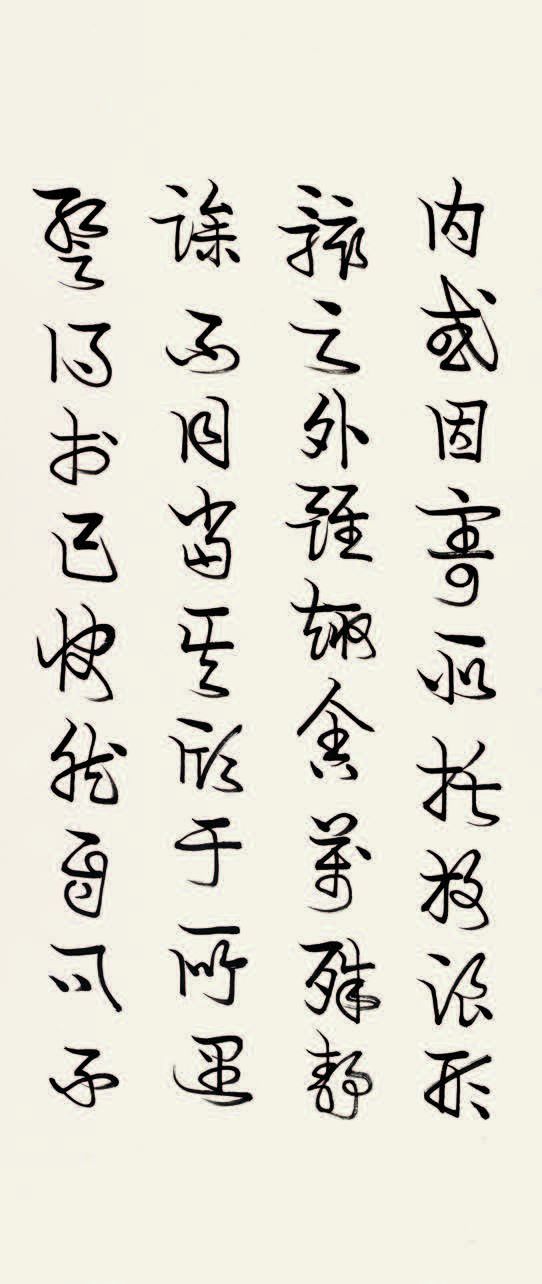 内或因寄所托放浪形
骸之外雖趣舍萬殊静
躁不同當其欣于所遇
暫得於己快然自足不